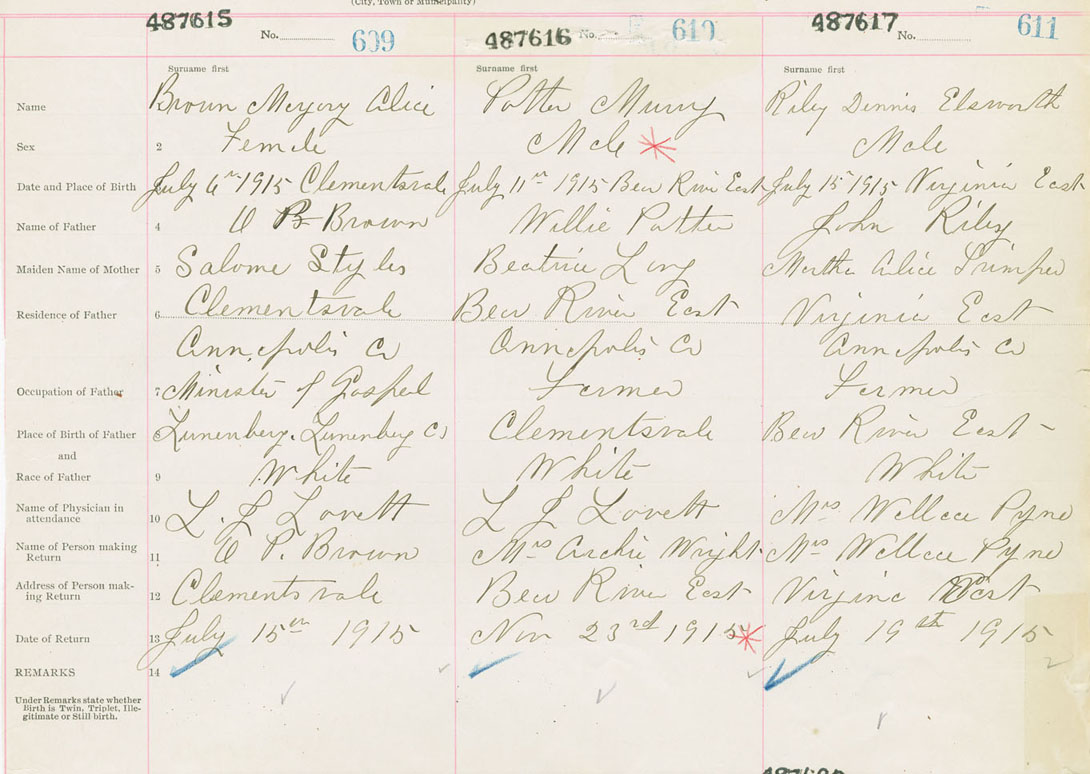 (City, Town or Municipality)
487615 No. 609 487616 No. 610 487617 No. 611
Surname first Surname first Surname first
Name Brown Mergery Alice Potter Murry Riley Dennis Elsworth
Sex 2 Female Male Male
Date and Place of Birth July 6th 1915 Clementsvale July 11th 1915 Bear River East July 15 1915 Virginia East
Name of Father 4 O P Brown Willie Potter John Riley
Maiden Name of Mother 5 Salome Styles Beatrice Long Martha Alice Trimper
Residence of Father 6 Clementsvale Bear River East Virginia East
Annapolis Co Annapolis Co Annapolis Co
Occupation of Father 7 Minister of Gospel Farmer Farmer
Place of Birth of Father 8 Lunenberg. Lunenberg Co Clementsvale Bear River East
and
Race of Father 9 White White White
Name of Physician in
attendance 10 L. J. Lovett L J Lovett Mrs Wallace Pyne
Name of Person making
Return 11 O P. Brown Mrs Archie Wright Mrs Wallace Pyne
Address of Person mak-
ing Return 12 Clementsvale Bear River East Virgina East
Date of Return 13 July 15th 1915 Nov 23rd 1915 July 19th 1915
REMARKS 14
Under Remarks state whether
Birth is Twin, Triplet, Ille-
gitimate or Still birth.